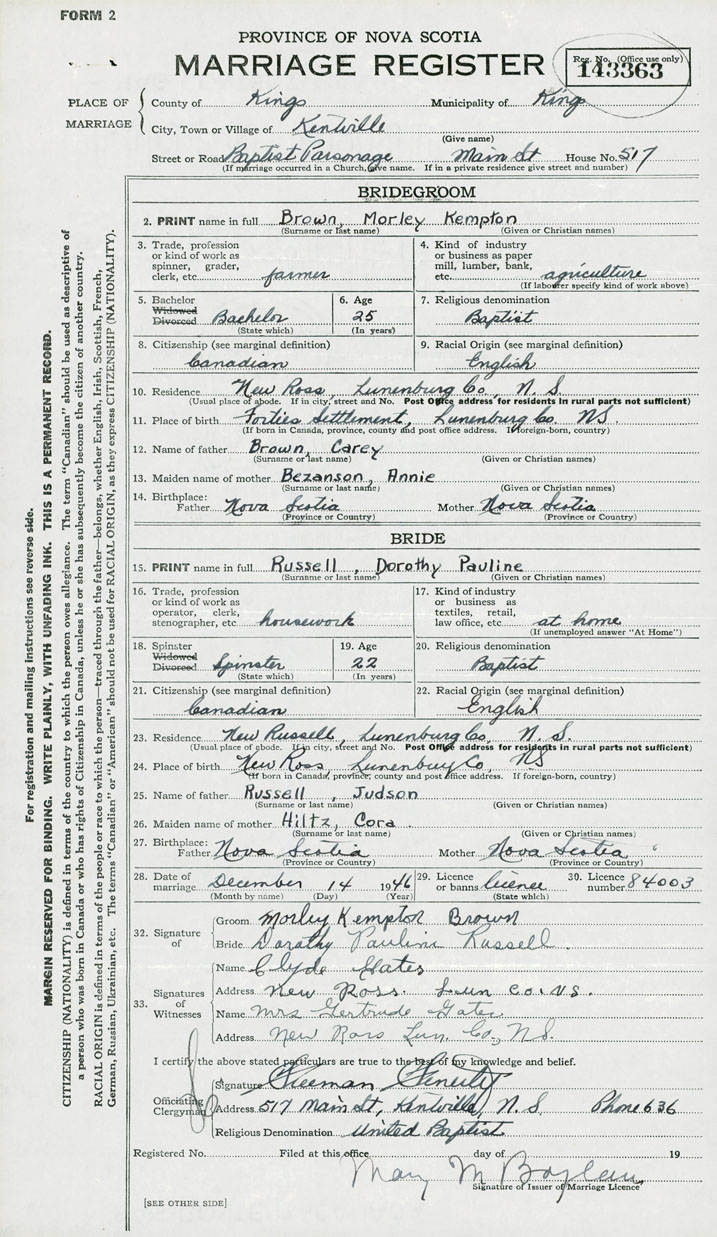 FORM 2
PROVINCE OF NOVA SCOTIA
MARRIAGE REGISTER
Reg. No. (Office use only)
143363
PLACE OF MARRIAGE
County of Kings Municipality of Kings
City, Town or Village of Kentville
(Give name)
Street or Road Baptist Parsonage Main St House No. 517
(If marriage occurred in a Church, give name. If in a private residence give street and number)
BRIDEGROOM
2. PRINT name in full Brown, Morley Kempton
(Surname or last name) (Given or Christian names)
3. Trade, profession or kind of work as spinner, grader, clerk, etc. farmer
4. Kind of industry or business as paper mill, lumber, bank, etc. agriculture
(If labourer specify kind of work above)
5. Bachelor Widowed Divorced Bachelor
(State which)
6. Age 25
(In years)
7. Religious denomination
Baptist
8. Citizenship (see marginal definition)
Canadian
9. Racial Origin (see marginal definition)
English
10. Residence New Ross, Lunenburg Co. N. S.
(Usual place of abode. If in city, street and No. Post Office address for residents in rural parts not sufficient)
11. Place of birth Forties Settlement, Lunenburg Co. NS.
(If born in Canada, province, county and post office address. If foreign-born, country)
12. Name of father Brown, Carey
(Surname or last name) (Given or Christian names)
13. Maiden name of mother Bezanson, Annie
(Surname or last name) (Given or Christian names)
14. Birthplace: Father Nova Scotia Mother Nova Scotia
(Province or Country) (Province or Country)
BRIDE
15. PRINT name in full Russell, Dorothy Pauline
(Surname or last name) (Given or Christian names)
16. Trade, profession or kind of work as operator, clerk, stenographer, etc. housework
17. Kind of industry or business as textiles, retail, law office, etc. at home
(If unemployed answer "At Home")
18. Spinster Widowed Divorced Spinster
(State which)
19. Age 22
(In years)
20. Religious denomination
Baptist
21. Citizenship (see marginal definition)
Canadian
22. Racial Origin (see marginal definition)
English
23. Residence New Russell, Lunenburg Co., N. S.
(Usual place of abode. If in city, street and No. Post Office address for residents in rural parts not sufficient)
24. Place of birth New Ross, Lunenburg Co, NS
(If born in Canada, province, county and post office address. If foreign-born, country)
25. Name of father Russell, Judson
(Surname or last name) (Given or Christian names)
26. Maiden name of mother Hiltz, Cora
(Surname or last name) (Given or Christian names)
27. Birthplace: Father Nova Scotia Mother Nova Scotia
(Province or Country) (Province or Country)
28. Date of marriage December 14 1946
(Month by name) (Day) (Year)
29. Licence or banns license
(State which)
30. Licence number 84003
32. Signature of
Groom Morley Kempton Brown
Bride Dorothy Pauline Russell.
33. Signatures of Witnesses
Name Clyde Gates
Address New Ross. Lun Co. NS.
Name Mrs Gertrude Gates
Address New Ross Lun. Co., N.S.
I certify the above stated particulars are true to the best of my knowledge and belief.
Officiating Clergyman
Signature Freeman Fenerty
Address 517 Main St, Kentville, N. S Phone 636
Religious Denomination United Baptist
Registered No. Filed at this office day of 19
Mary M
Signature of Issuer of Marriage Licence
[SEE OTHER SIDE]
For registration and mailing instructions see reverse side.
MARGIN RESERVED FOR BINDING. WRITE PLAINLY, WITH UNFADING INK. THIS IS A PERMANENT RECORD.
CITIZENSHIP (NATIONALITY) is defined in terms of the country to which the person owes allegiance. The term "Canadian" should be used as descriptive of
a person who was born in Canada or who has rights of Citizenship in Canada, unless he or she has subsequently become the citizen of another country.
RACIAL ORIGIN is defined in terms of the people or race to which the person—traced through the father—belongs, whether English, Irish, Scottish, French,
German, Russian, Ukrainian, etc. The terms "Canadian" or "American" should not be used for RACIAL ORIGIN, as they express CITIZENSHIP (NATIONALITY).